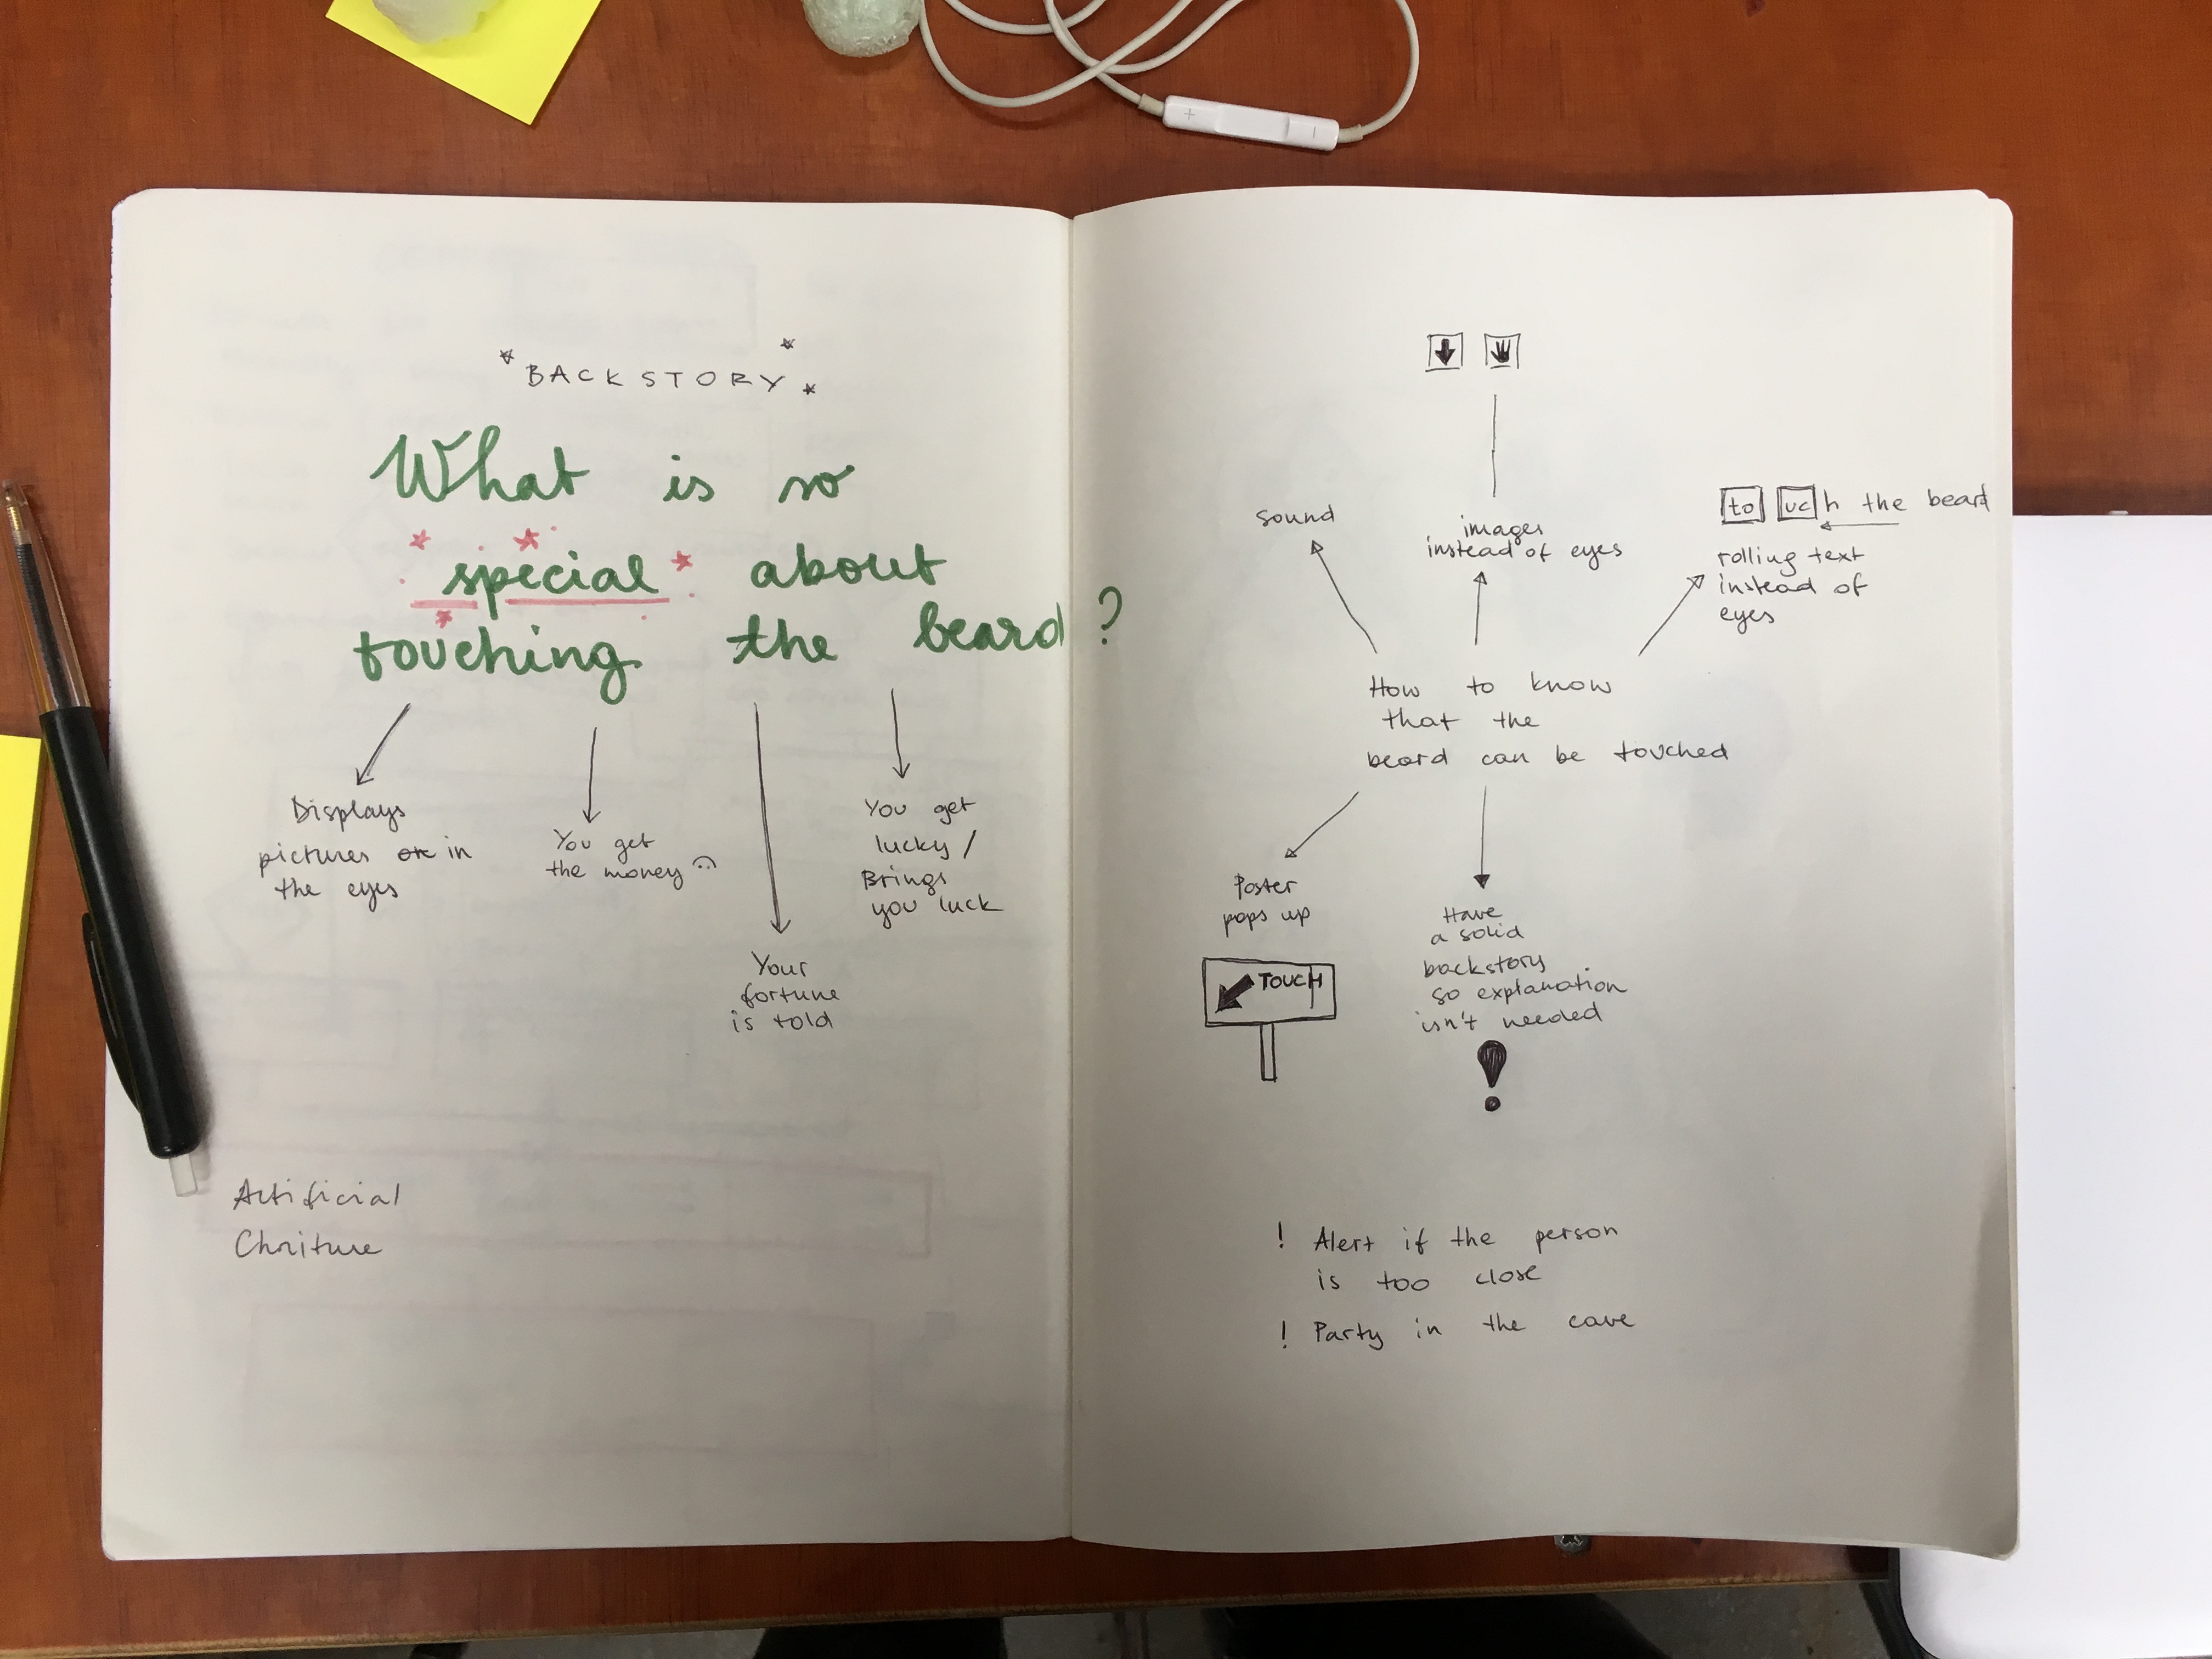 BACKSTORY
What is so
special about
touching the beard?
Displays
pictures on in
the eyes
You get
the money
Your
fortune
is told
You get
lucky /
Brings
you luck
Artificial
Chriture
sound
images
instead of eyes
to uch the beard
rolling text
instead of
eyes
How to know
that the
beard can be touched
Poster
pops up
TOUCH
Have
a solid
backstory
so explanation
isn't needed
!
! Alert if the person
is too close
! Party in the cave